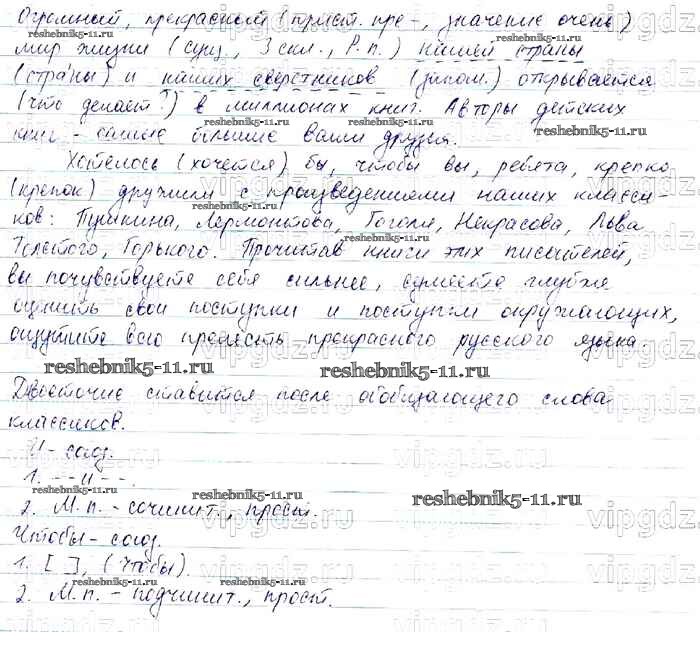 Огромный, прекрасный (прист. пре-, значение очень)
мир жизни (сущ., 3 скл., Р.п.) нашей страны
(стра́ны) и наших сверстников (запом.) открывается
(что делает?) в миллионах книг. Авторы детских
книг - самые большие ваши друзья.
Хотелось (хочется) бы, чтобы вы, ребята, крепко
(крепок) дружили с произведениями наших класси-
ков: Пушкина, Лермонтова, Гоголя, Некрасова, Льва
Толстого, Горького. Прочитав книги этих писателей,
вы почувствуете себя сильнее, сумеете глубже
оценить свои поступки и поступки окружающих,
ощутите всю прелесть прекрасного русского языка.
Двоеточие ставится после обобщающего слова
классиков.
И - союз.
1. --- и --.
2. М.п. - сочинит., прост.
Чтобы - союз.
1. [ ], (чтобы).
2. М.п. - подчинит., прост.
reshebnik5-11.ru
vipgdz.ru